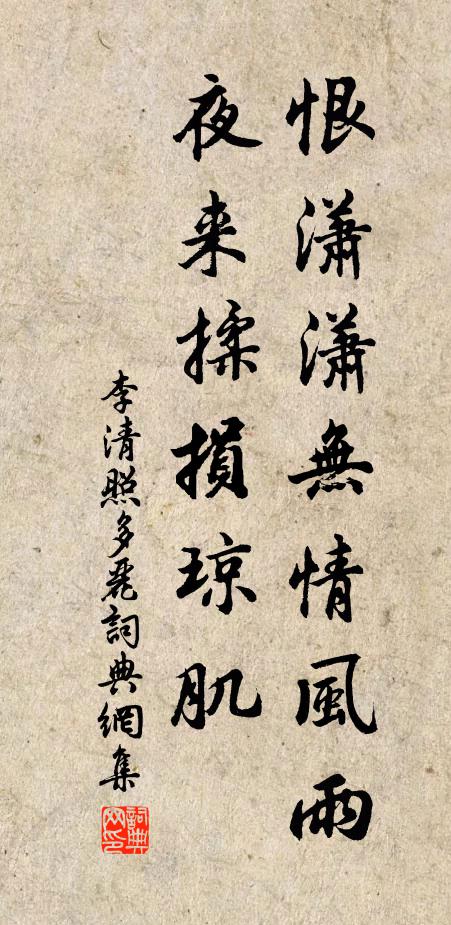 恨瀟瀟無情風雨
夜来揉損琼肌
李清照多麗詞典網集
詞典网印